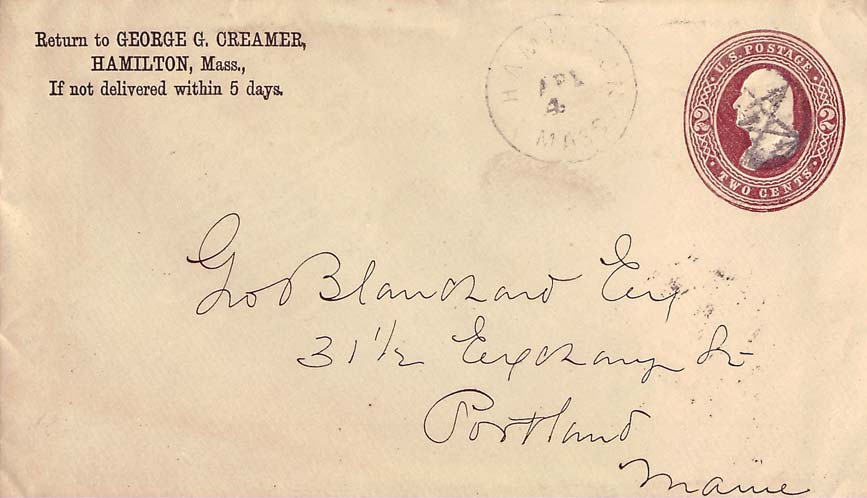 Return to GEORGE G. CREAMER,
HAMILTON, Mass.,
If not delivered within 5 days.
HAMILTON
APR
4
MASS
U.S. POSTAGE
2 2
TWO CENTS
Geo Blanchard Esq
31 1/2 Exchange St
Portland
Maine